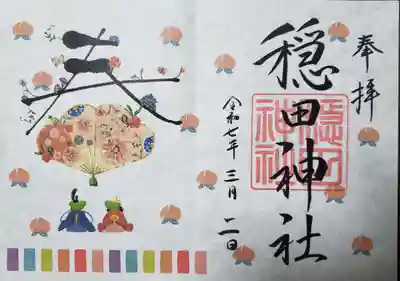 奉拝
穏田神社
穏田神社
令和七年 三月 二日